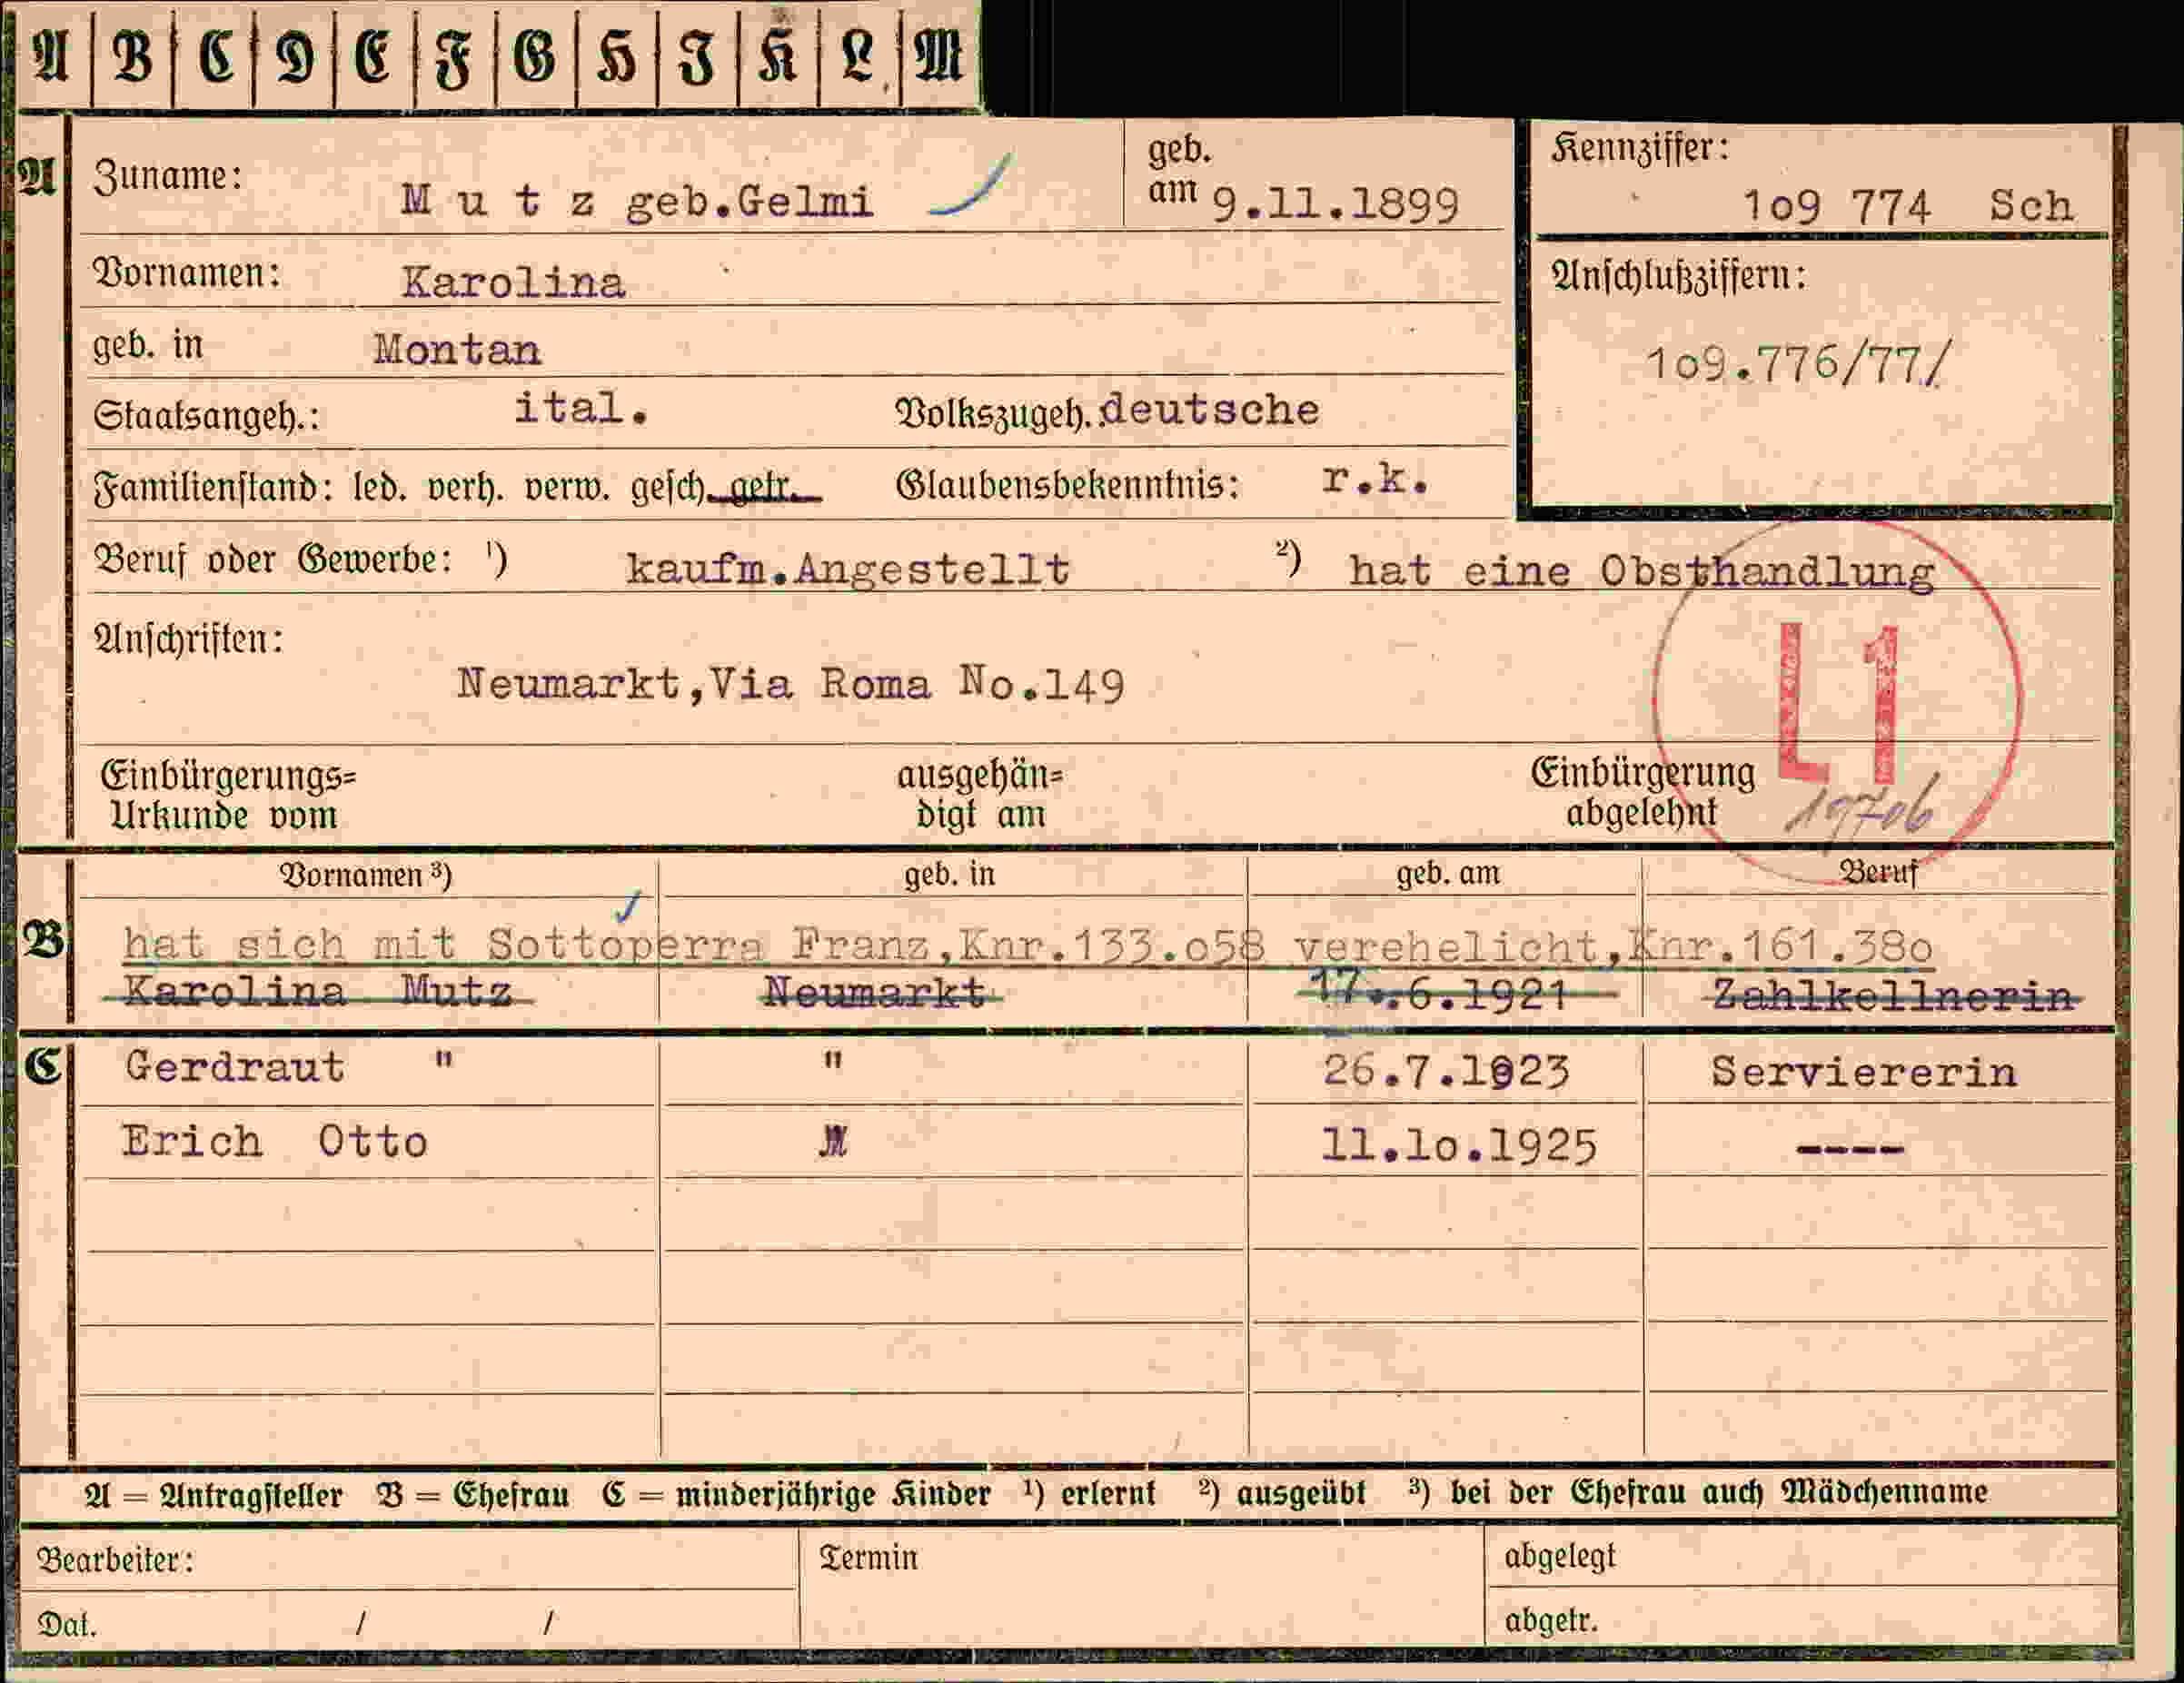 A B C D E F G H J K L M
A Zuname: Mutz geb.Gelmi geb. am 9.11.1899
Kennziffer: 1o9 774 Sch
Vornamen: Karolina
Anschlußziffern: 1o9.776/77/
geb. in Montan
Staatsangeh.: ital. Volkszugeh.: deutsche
Familienstand: led. verh. verw. gesch. getr. Glaubensbekenntnis: r.k.
Beruf oder Gewerbe: ¹) kaufm.Angestellt ²) hat eine Obsthandlung
Anschriften:
Neumarkt,Via Roma No.149
L1
Einbürgerungs=
Urkunde vom
ausgehän=
digt am
Einbürgerung
abgelehnt
19706
Vornamen ³) geb. in geb. am Beruf
B hat sich mit Sottoperra Franz,Knr.133.o58 verehelicht,Knr.161.38o
Karolina Mutz Neumarkt 17.6.1921 Zahlkellnerin
C Gerdraut " " 26.7.1923 Serviererin
Erich Otto " 11.1o.1925 ----
A = Antragsteller B = Ehefrau C = minderjährige Kinder ¹) erlernt ²) ausgeübt ³) bei der Ehefrau auch Mädchenname
Bearbeiter: Termin abgelegt
Dat. / / abgetr.